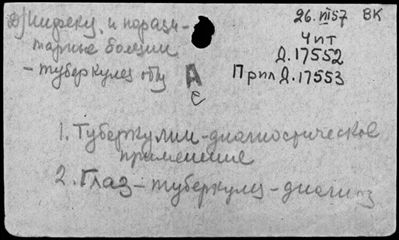 26.VII57 ВК
Д) Инфекц. и парази-
тарные болезни
- туберкулез общ
Чит
Д.17552
Прил Д.17553
А
с
1. Туберкулин-диагностическое
применение
2. Глаз-туберкулез-диагноз